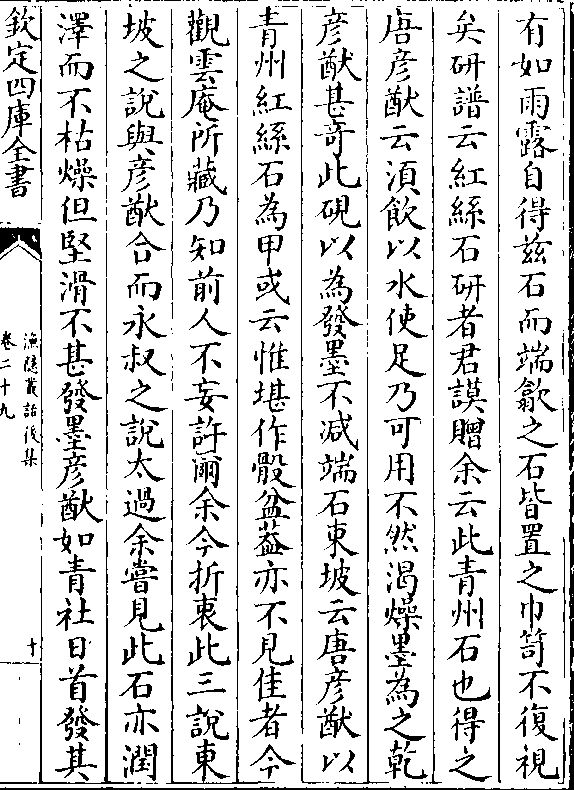 有如雨露自得茲石而端歙之石皆置之巾笥不復視
矣研譜云紅絲石研者君謨贈余云此青州石也得之
唐彦猷云湏飲以水使足乃可用不然渴燥墨為之乾
彦猷甚竒此硯以為發墨不减端石東坡云唐彦猷以
青州紅絲石為甲或云惟堪作骰盆葢亦不見佳者今
觀雲庵所藏乃知前人不妄許爾余今折衷此三說東
坡之說與彦猷合而永叔之說太過余嘗見此石亦潤
澤而不枯燥但堅滑不甚發墨彦猷如青社日首發其
欽定四庫全書
漁隱叢話後集
卷二十九
十